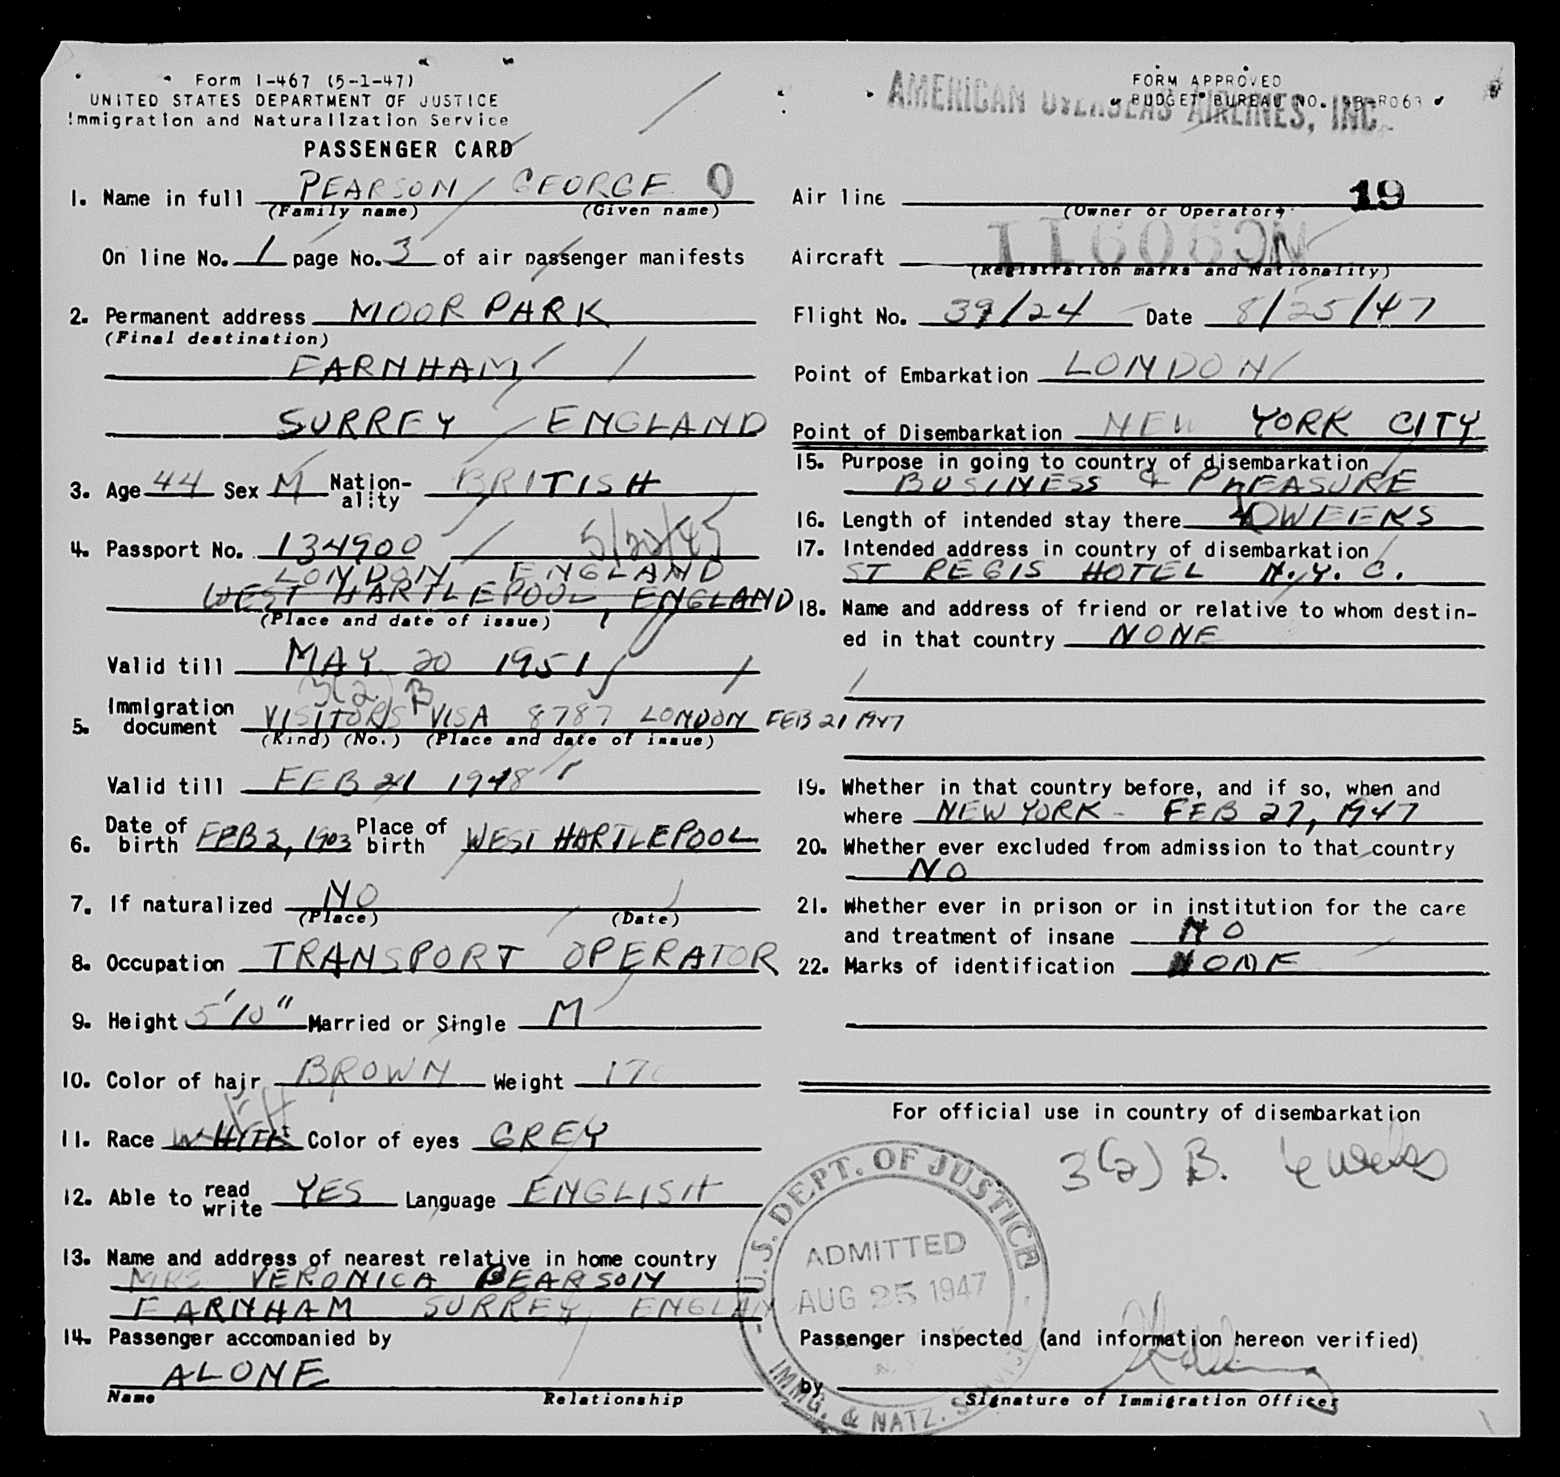 Form I-467 (5-1-47)
UNITED STATES DEPARTMENT OF JUSTICE
Immigration and Naturalization Service
PASSENGER CARD
1. Name in full PEARSON GEORGE O
(Family name) (Given name)
On line No. 1 page No. 3 of air passenger manifests
2. Permanent address MOOR PARK
(Final destination)
FARNHAM
SURREY ENGLAND
3. Age 44 Sex M Nation-ality BRITISH
4. Passport No. 134900 5/20/45
LONDON ENGLAND
WEST HARTLEPOOL, ENGLAND
(Place and date of issue)
Valid till MAY 20 1951
3(2) B
5. Immigration document VISITORS VISA 8787 LONDON FEB 21 1947
(Kind) (No.) (Place and date of issue)
Valid till FEB 21 1948
6. Date of birth FEB 2, 1903 Place of birth WEST HARTLEPOOL
7. If naturalized NO
(Place) (Date)
8. Occupation TRANSPORT OPERATOR
9. Height 5'10" Married or Single M
10. Color of hair BROWN Weight 170
11. Race WHYTE Color of eyes GREY
12. Able to read write YES Language ENGLISH
13. Name and address of nearest relative in home country
MRS VERONICA PEARSON
FARNHAM SURREY ENGLAN
14. Passenger accompanied by
ALONE
Name Relationship
FORM APPROVED
BUDGET BUREAU NO.
AMERICAN OVERSEAS AIRLINES, INC.
Air line 19
(Owner or Operator)
Aircraft
(Registration marks and Nationality)
Flight No. 39/24 Date 8/25/47
Point of Embarkation LONDON
Point of Disembarkation NEW YORK CITY
15. Purpose in going to country of disembarkation
BUSINESS & PLEASURE
16. Length of intended stay there WEEKS
17. Intended address in country of disembarkation
ST REGIS HOTEL N.Y.C.
18. Name and address of friend or relative to whom destin-
ed in that country NONE
19. Whether in that country before, and if so, when and
where NEW YORK - FEB 27, 1947
20. Whether ever excluded from admission to that country
NO
21. Whether ever in prison or in institution for the care
and treatment of insane NO
22. Marks of identification NONE
For official use in country of disembarkation
3(2) B. 6 weeks
U.S. DEPT. OF JUSTICE
ADMITTED
AUG 25 1947
IMMG. & NATZ. SERVICE
Passenger inspected (and information hereon verified)
by
Signature of Immigration Officer